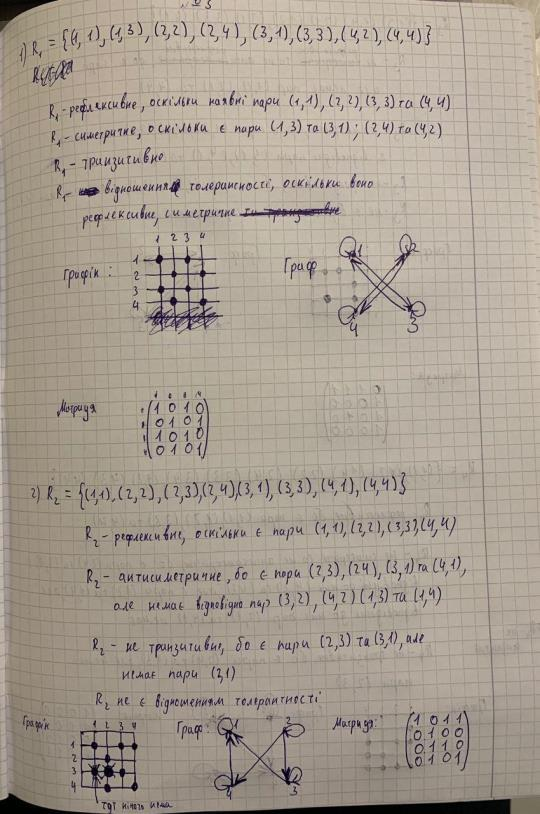 1) R₁ = {(1, 1), (1, 3), (2, 2), (2, 4), (3, 1), (3, 3), (4, 2), (4, 4)}
R₁ - рефлексивне, оскільки наявні пари (1, 1), (2, 2), (3, 3) та (4, 4)
R₁ - симетричне, оскільки є пари (1, 3) та (3, 1) ; (2, 4) та (4, 2)
R₁ - транзитивно
R₁ - відношення толерансності, оскільки воно
рефлексивне, симетричне
1 2 3 4
Графік :
1
2
3
4
Граф
1 2
4 3
Матриця
1 0 1 0
0 1 0 1
1 0 1 0
0 1 0 1
2) R₂ = {(1, 1), (2, 2), (2, 3) (2, 4), (3, 1), (3, 3), (4, 1), (4, 4)}
R₂ - рефлексивне, оскільки є пари (1, 1), (2, 2), (3, 3), (4, 4)
R₂ - антисиметричне, бо є пари (2, 3), (2 4), (3, 1) та (4, 1),
але немає відповідно пар (3, 2), (4, 2) (1, 3) та (1, 4)
R₂ - не транзитивне, бо є пари (2, 3) та (3, 1), але
немає пари (2, 1)
R₂ не є відношенням толерантності
Графік
1 2 3 4
1
2
3
4
тут нічого нема
Граф:
1 2
4 3
Матриця:
1 0 1 1
0 1 0 0
0 1 1 0
0 1 0 1